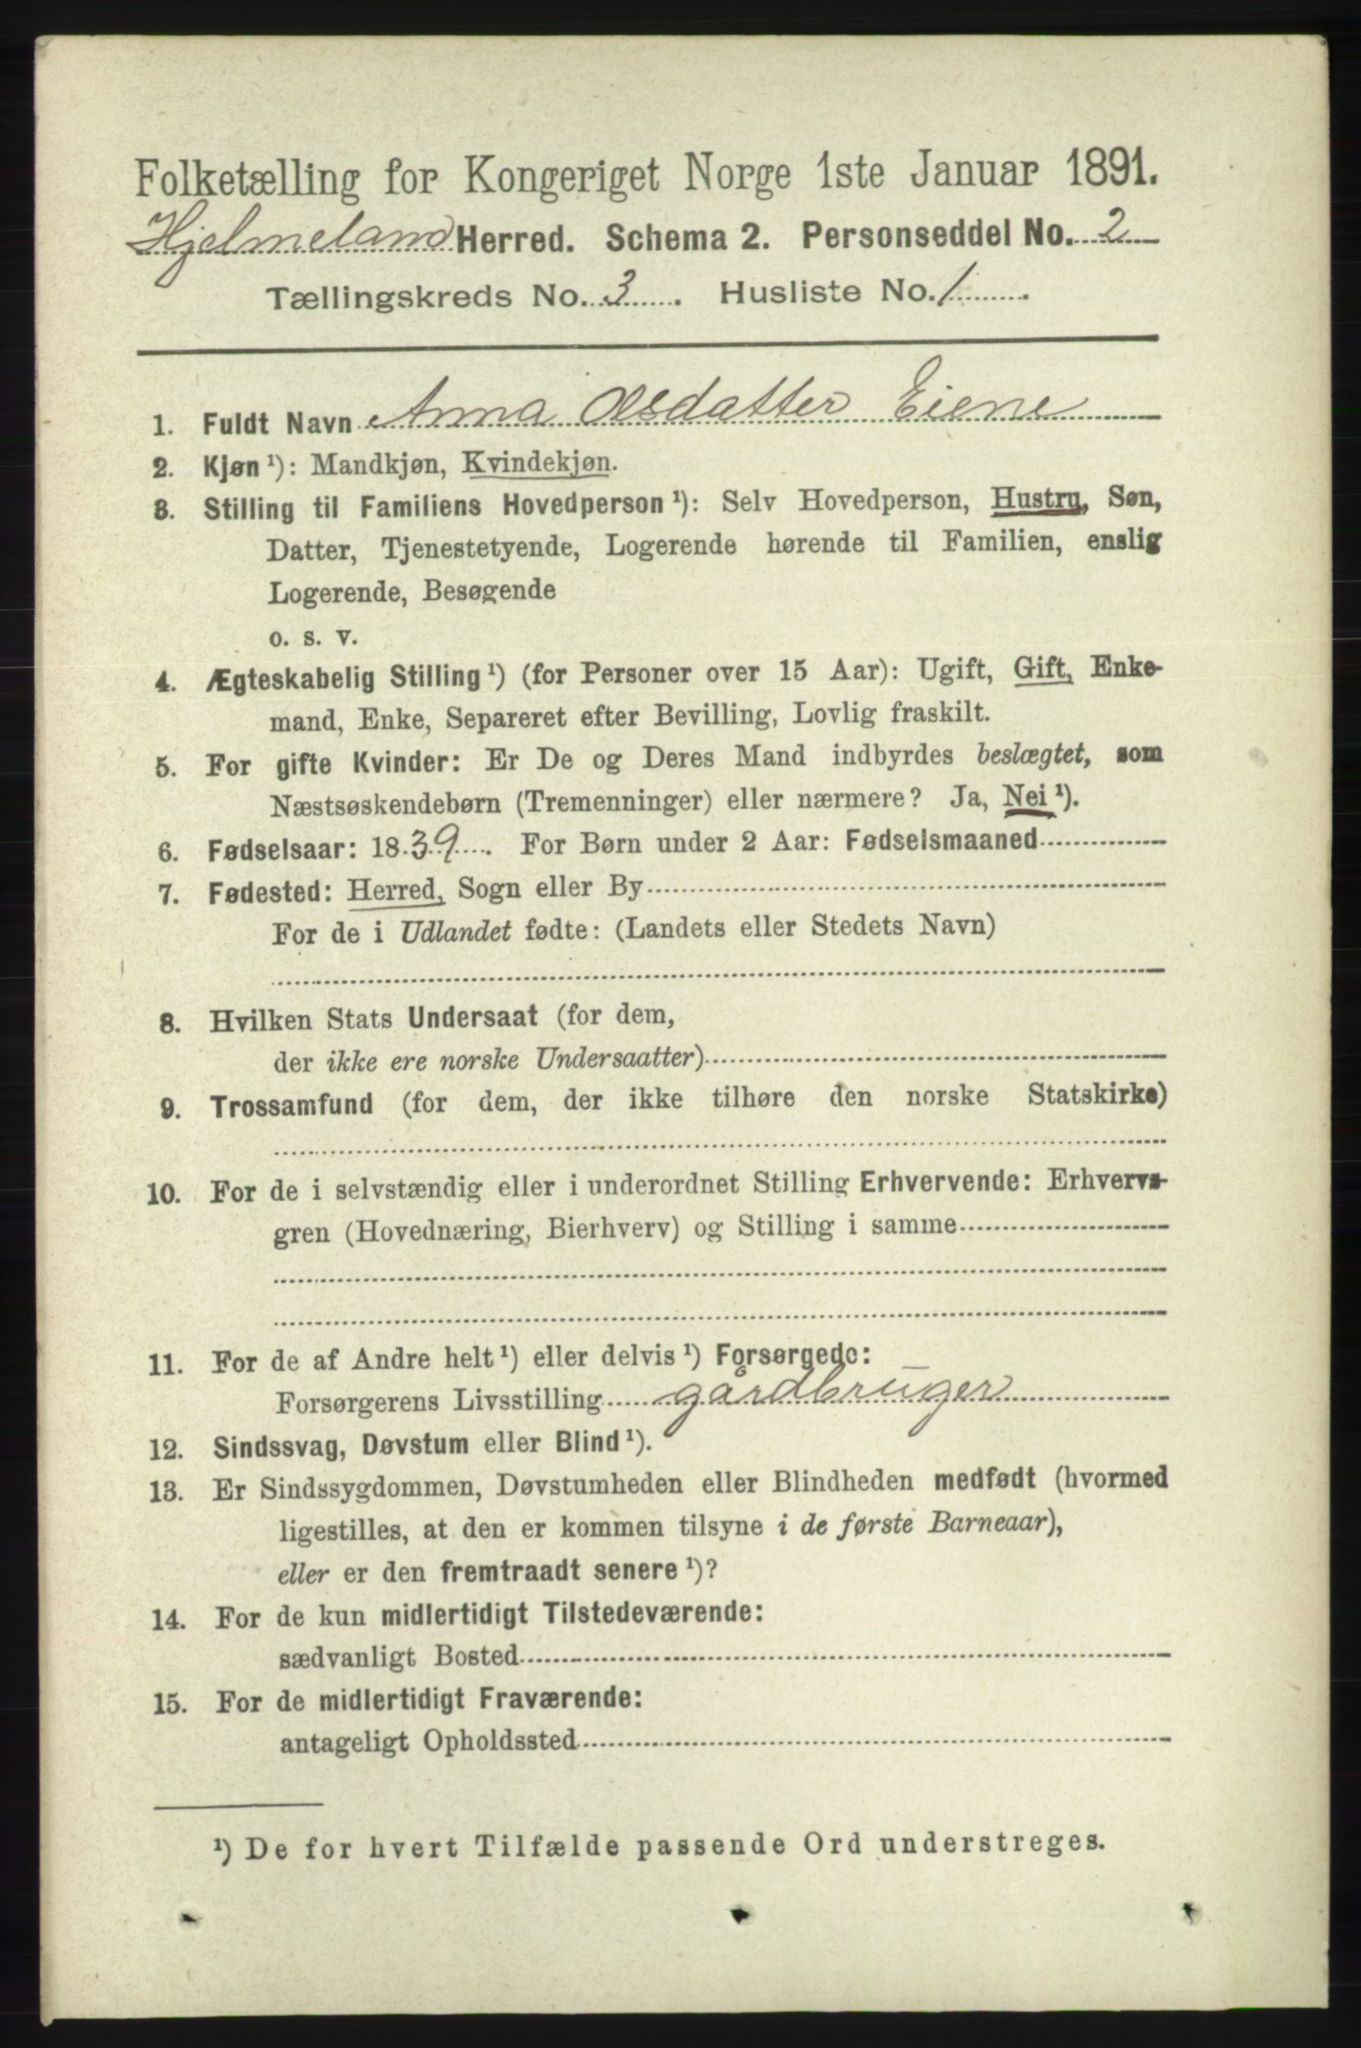 Folketælling for Kongeriget Norge 1ste Januar 1891.
Hjelmeland Herred. Schema 2. Personseddel No. 2
Tællingskreds No. 3. Husliste No. 1.
1. Fuldt Navn Anna Olsdatter Eiene
2. Kjøn ¹): Mandkjøn, Kvindekjøn.
3. Stilling til Familiens Hovedperson ¹): Selv Hovedperson, Hustru, Søn,
Datter, Tjenestetyende, Logerende hørende til Familien, enslig
Logerende, Besøgende
o. s. v.
4. Ægteskabelig Stilling ¹) (for Personer over 15 Aar): Ugift, Gift, Enke-
mand, Enke, Separeret efter Bevilling, Lovlig fraskilt.
5. For gifte Kvinder: Er De og Deres Mand indbyrdes beslægtet, som
Næstsøskendebørn (Tremenninger) eller nærmere? Ja, Nei ¹).
6. Fødselsaar: 1839. For Børn under 2 Aar: Fødselsmaaned
7. Fødested: Herred, Sogn eller By
For de i Udlandet fødte: (Landets eller Stedets Navn)
8. Hvilken Stats Undersaat (for dem,
der ikke ere norske Undersaatter)
9. Trossamfund (for dem, der ikke tilhøre den norske Statskirke)
10. For de i selvstændig eller i underordnet Stilling Erhvervende: Erhvervs-
gren (Hovednæring, Bierhverv) og Stilling i samme
11. For de af Andre helt ¹) eller delvis ¹) Forsørgede:
Forsørgerens Livsstilling gårdbruger
12. Sindssvag, Døvstum eller Blind ¹).
13. Er Sindssygdommen, Døvstumheden eller Blindheden medfødt (hvormed
ligestilles, at den er kommen tilsyne i de første Barneaar),
eller er den fremtraadt senere ¹)?
14. For de kun midlertidigt Tilstedeværende:
sædvanligt Bosted
15. For de midlertidigt Fraværende:
antageligt Opholdssted
¹) De for hvert Tilfælde passende Ord understreges.